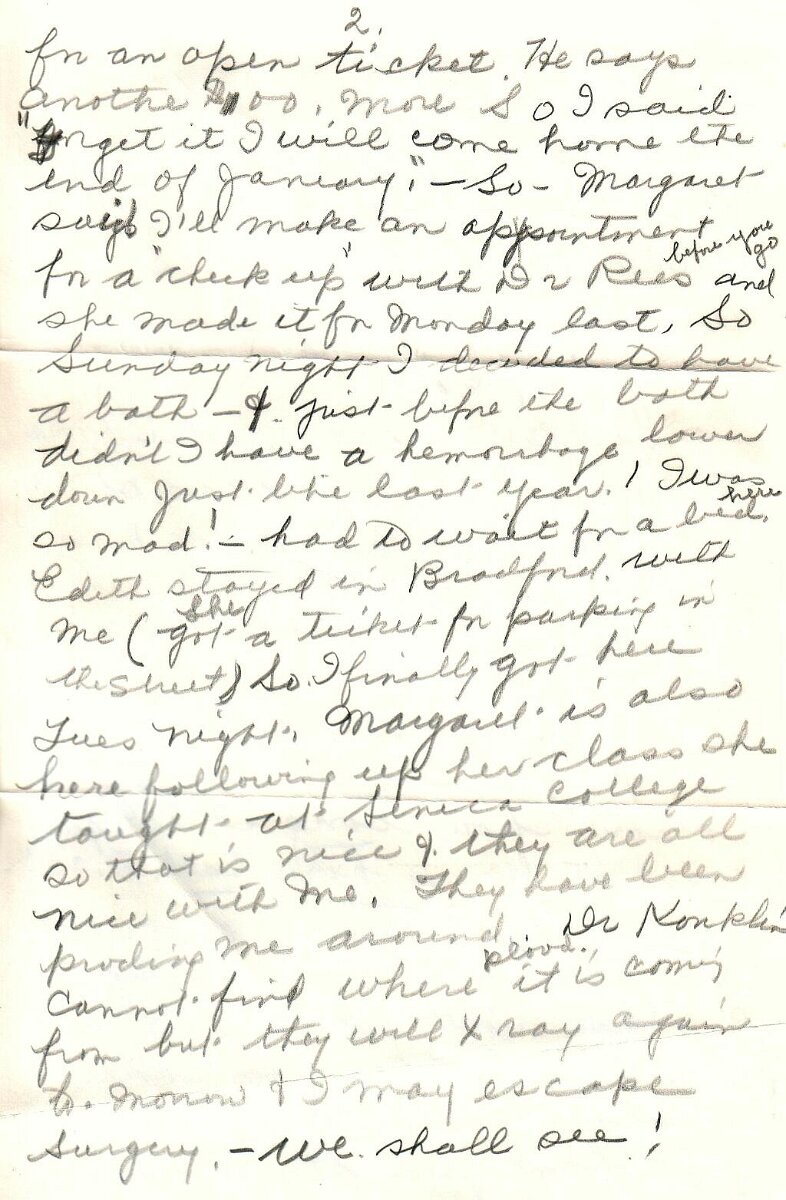 2.
for an open ticket. He says
anothe 00. more So I said
"forget it I will come home the
end of January." - So - Margaret
said I'll make an appointment
before you go
for a "check up" with Dr Rees and
she made it for Monday last. So
Sunday night I decided to have
a bath - & just before the bath
didn't I have a hemorrhage lower
down just like last year! I was
here
so mad! - had to wait for a bed.
Edith stayed in Bradford with
me (she got a ticket for parking in
the street) So I finally got here
Tues night. Margaret is also
here following up her class she
taught at Seneca College
so that is nice & they are all
nice with me. They have been
proding me around Dr Konklin
blood.
cannot find where it is coming
from but they will X ray again
to. morrow & I may escape
surgery. - we shall see!